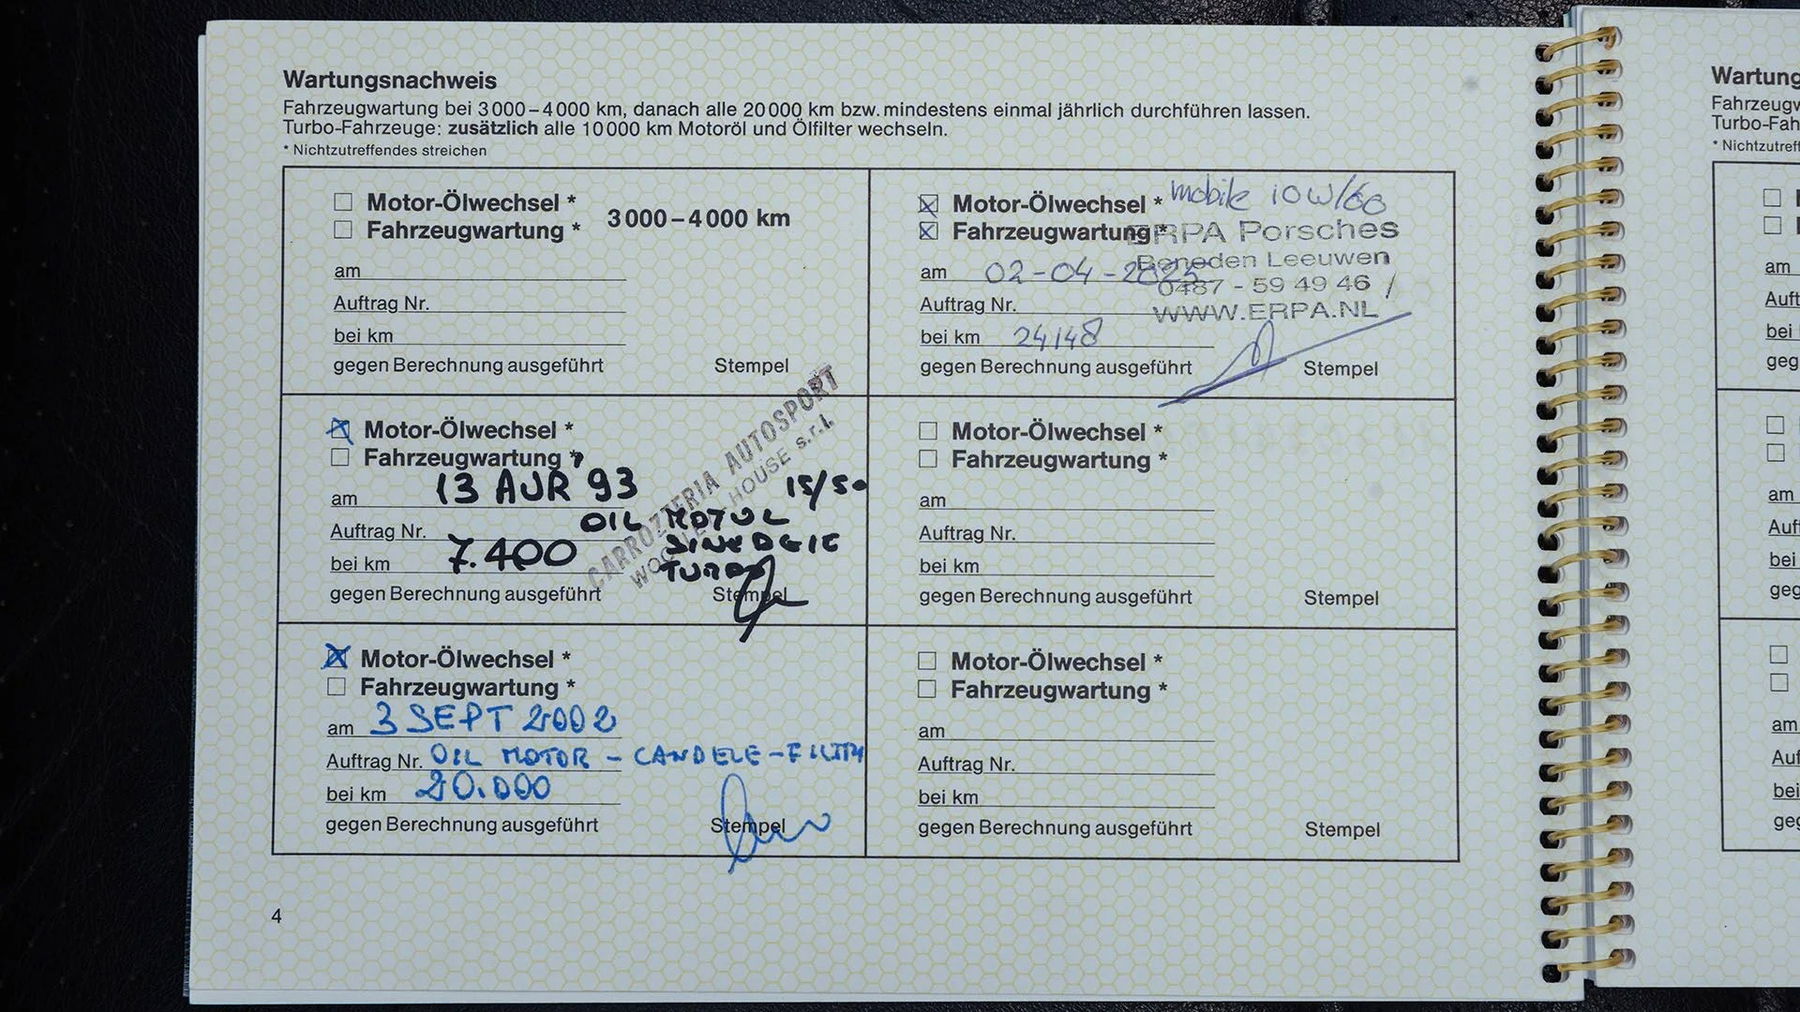 Wartungsnachweis
Fahrzeugwartung bei 3000–4000 km, danach alle 20000 km bzw. mindestens einmal jährlich durchführen lassen.
Turbo-Fahrzeuge: zusätzlich alle 10000 km Motoröl und Ölfilter wechseln.
* Nichtzutreffendes streichen
Motor-Ölwechsel *
Fahrzeugwartung *
3000–4000 km
am
Auftrag Nr.
bei km
gegen Berechnung ausgeführt Stempel
Motor-Ölwechsel *
Fahrzeugwartung *
am 13 AUR 93 15/50
Auftrag Nr. OIL MOTUL
bei km 7.400
TURBO
gegen Berechnung ausgeführt Stempel
CARROZZERIA AUTOSPORT
HOUSE s.r.l.
Motor-Ölwechsel *
Fahrzeugwartung *
am 3 SEPT 2002
Auftrag Nr. OIL MOTOR – CANDELE –
bei km 20.000
gegen Berechnung ausgeführt Stempel
4
Motor-Ölwechsel * mobile 10W/60
Fahrzeugwartung *
ERPA Porsches
Beneden Leeuwen
am 02-04-2025
0487 - 59 49 46 /
Auftrag Nr.
WWW.ERPA.NL
bei km 24148
gegen Berechnung ausgeführt Stempel
Motor-Ölwechsel *
Fahrzeugwartung *
am
Auftrag Nr.
bei km
gegen Berechnung ausgeführt Stempel
Motor-Ölwechsel *
Fahrzeugwartung *
am
Auftrag Nr.
bei km
gegen Berechnung ausgeführt Stempel
Wartung
Fahrzeugw
Turbo-Fah
* Nichtzutreff
am
Auft
bei
geg
am
Auf
bei
geg
am
Auf
bei
geg